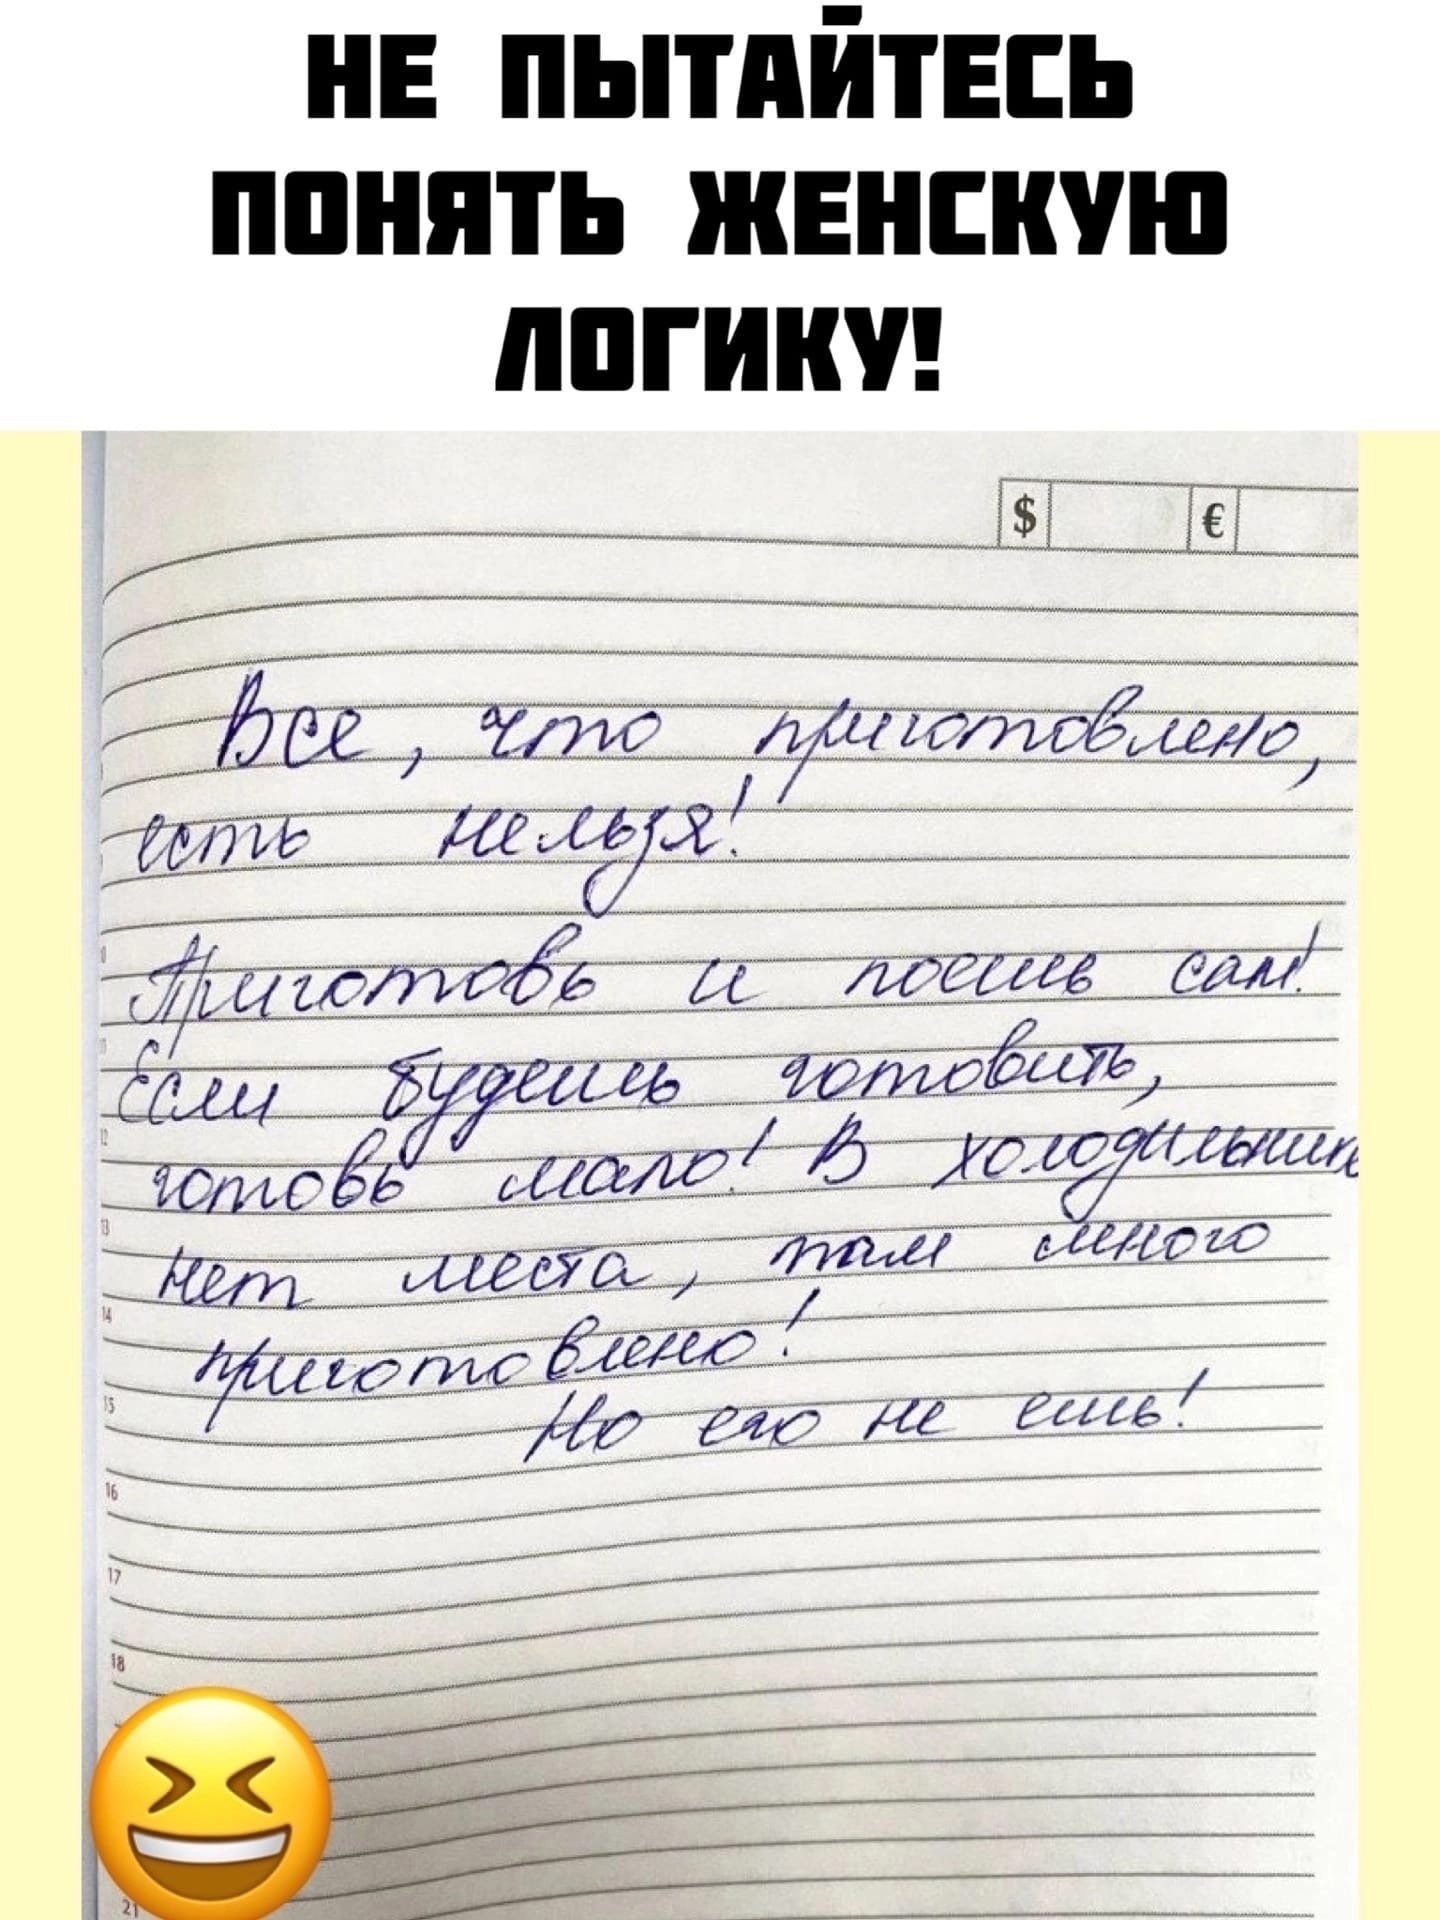 НЕ ПЫТАЙТЕСЬ
ПОНЯТЬ ЖЕНСКУЮ
ЛОГИКУ!
$ €
Все, что приготовлено,
есть нельзя!
Приготовь и поешь сам!
Если будешь готовить,
готовь мало! В холодильнике
нет места, там много
приготовлено!
Но его не ешь!
12
13
14
15
16
17
18
21